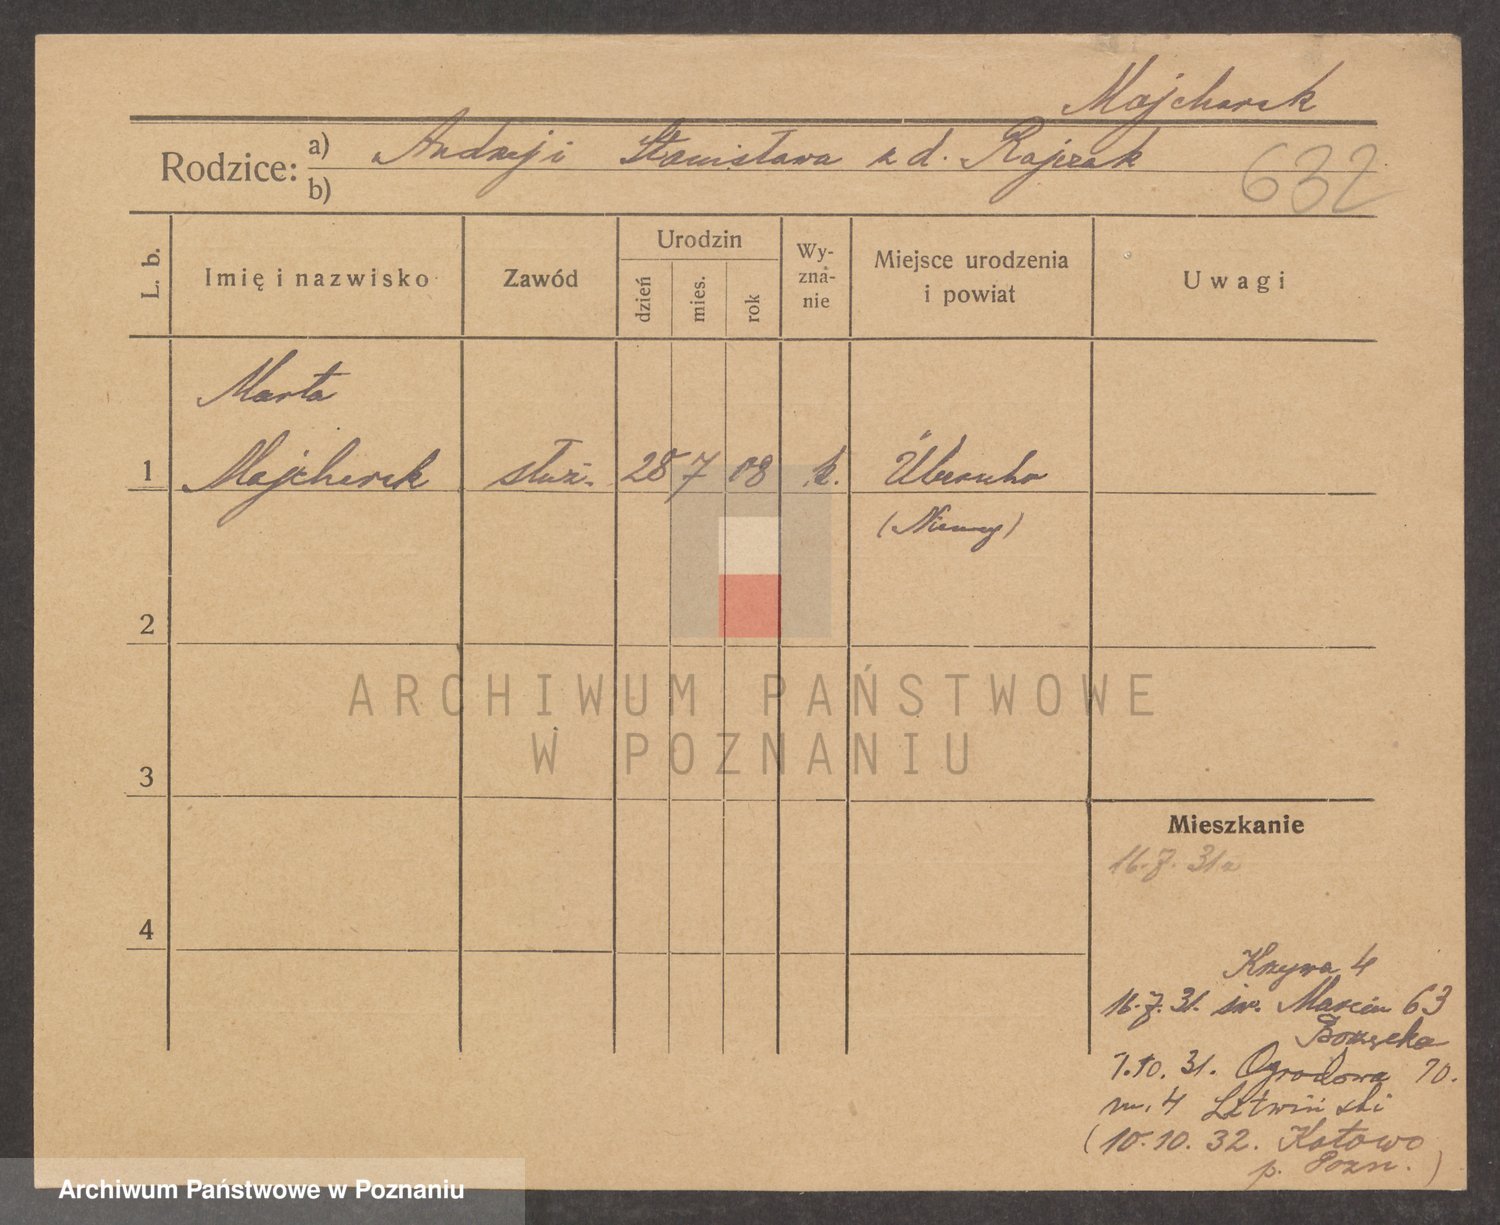 Majcherek
Rodzice: a) Andrzej i Stanisława z d. Rajczak
b)
632
L. b.
Imię i nazwisko
Zawód
Urodzin
dzień
mies.
rok
Wy-
zna-
nie
Miejsce urodzenia
i powiat
Uwagi
Marta
1 Majcherek służ. 28 7 08 k.
(Niemcy)
2
3
4
Mieszkanie
16.7.31
Krzywa 4
16.7.31. św. Marcin 63
1.10.31. Ogrodowa 10.
m. 4 Litwiński
(10.10.32. Kotowo
p. Pozn.)
ARCHIWUM PAŃSTWOWE
W POZNANIU
Archiwum Państwowe w Poznaniu